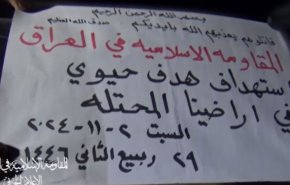 بسم الله الرحمن الرحيم
قاتلوهم يعذبهم الله بأيديكم صدق الله العظيم
المقاومة الاسلامية في العراق
استهداف هدف حيوي
في اراضينا المحتله
السبت ٢-١١-٢٠٢٤
٢٩ ربيع الثاني ١٤٤٦
المقاومة الإسلامية في